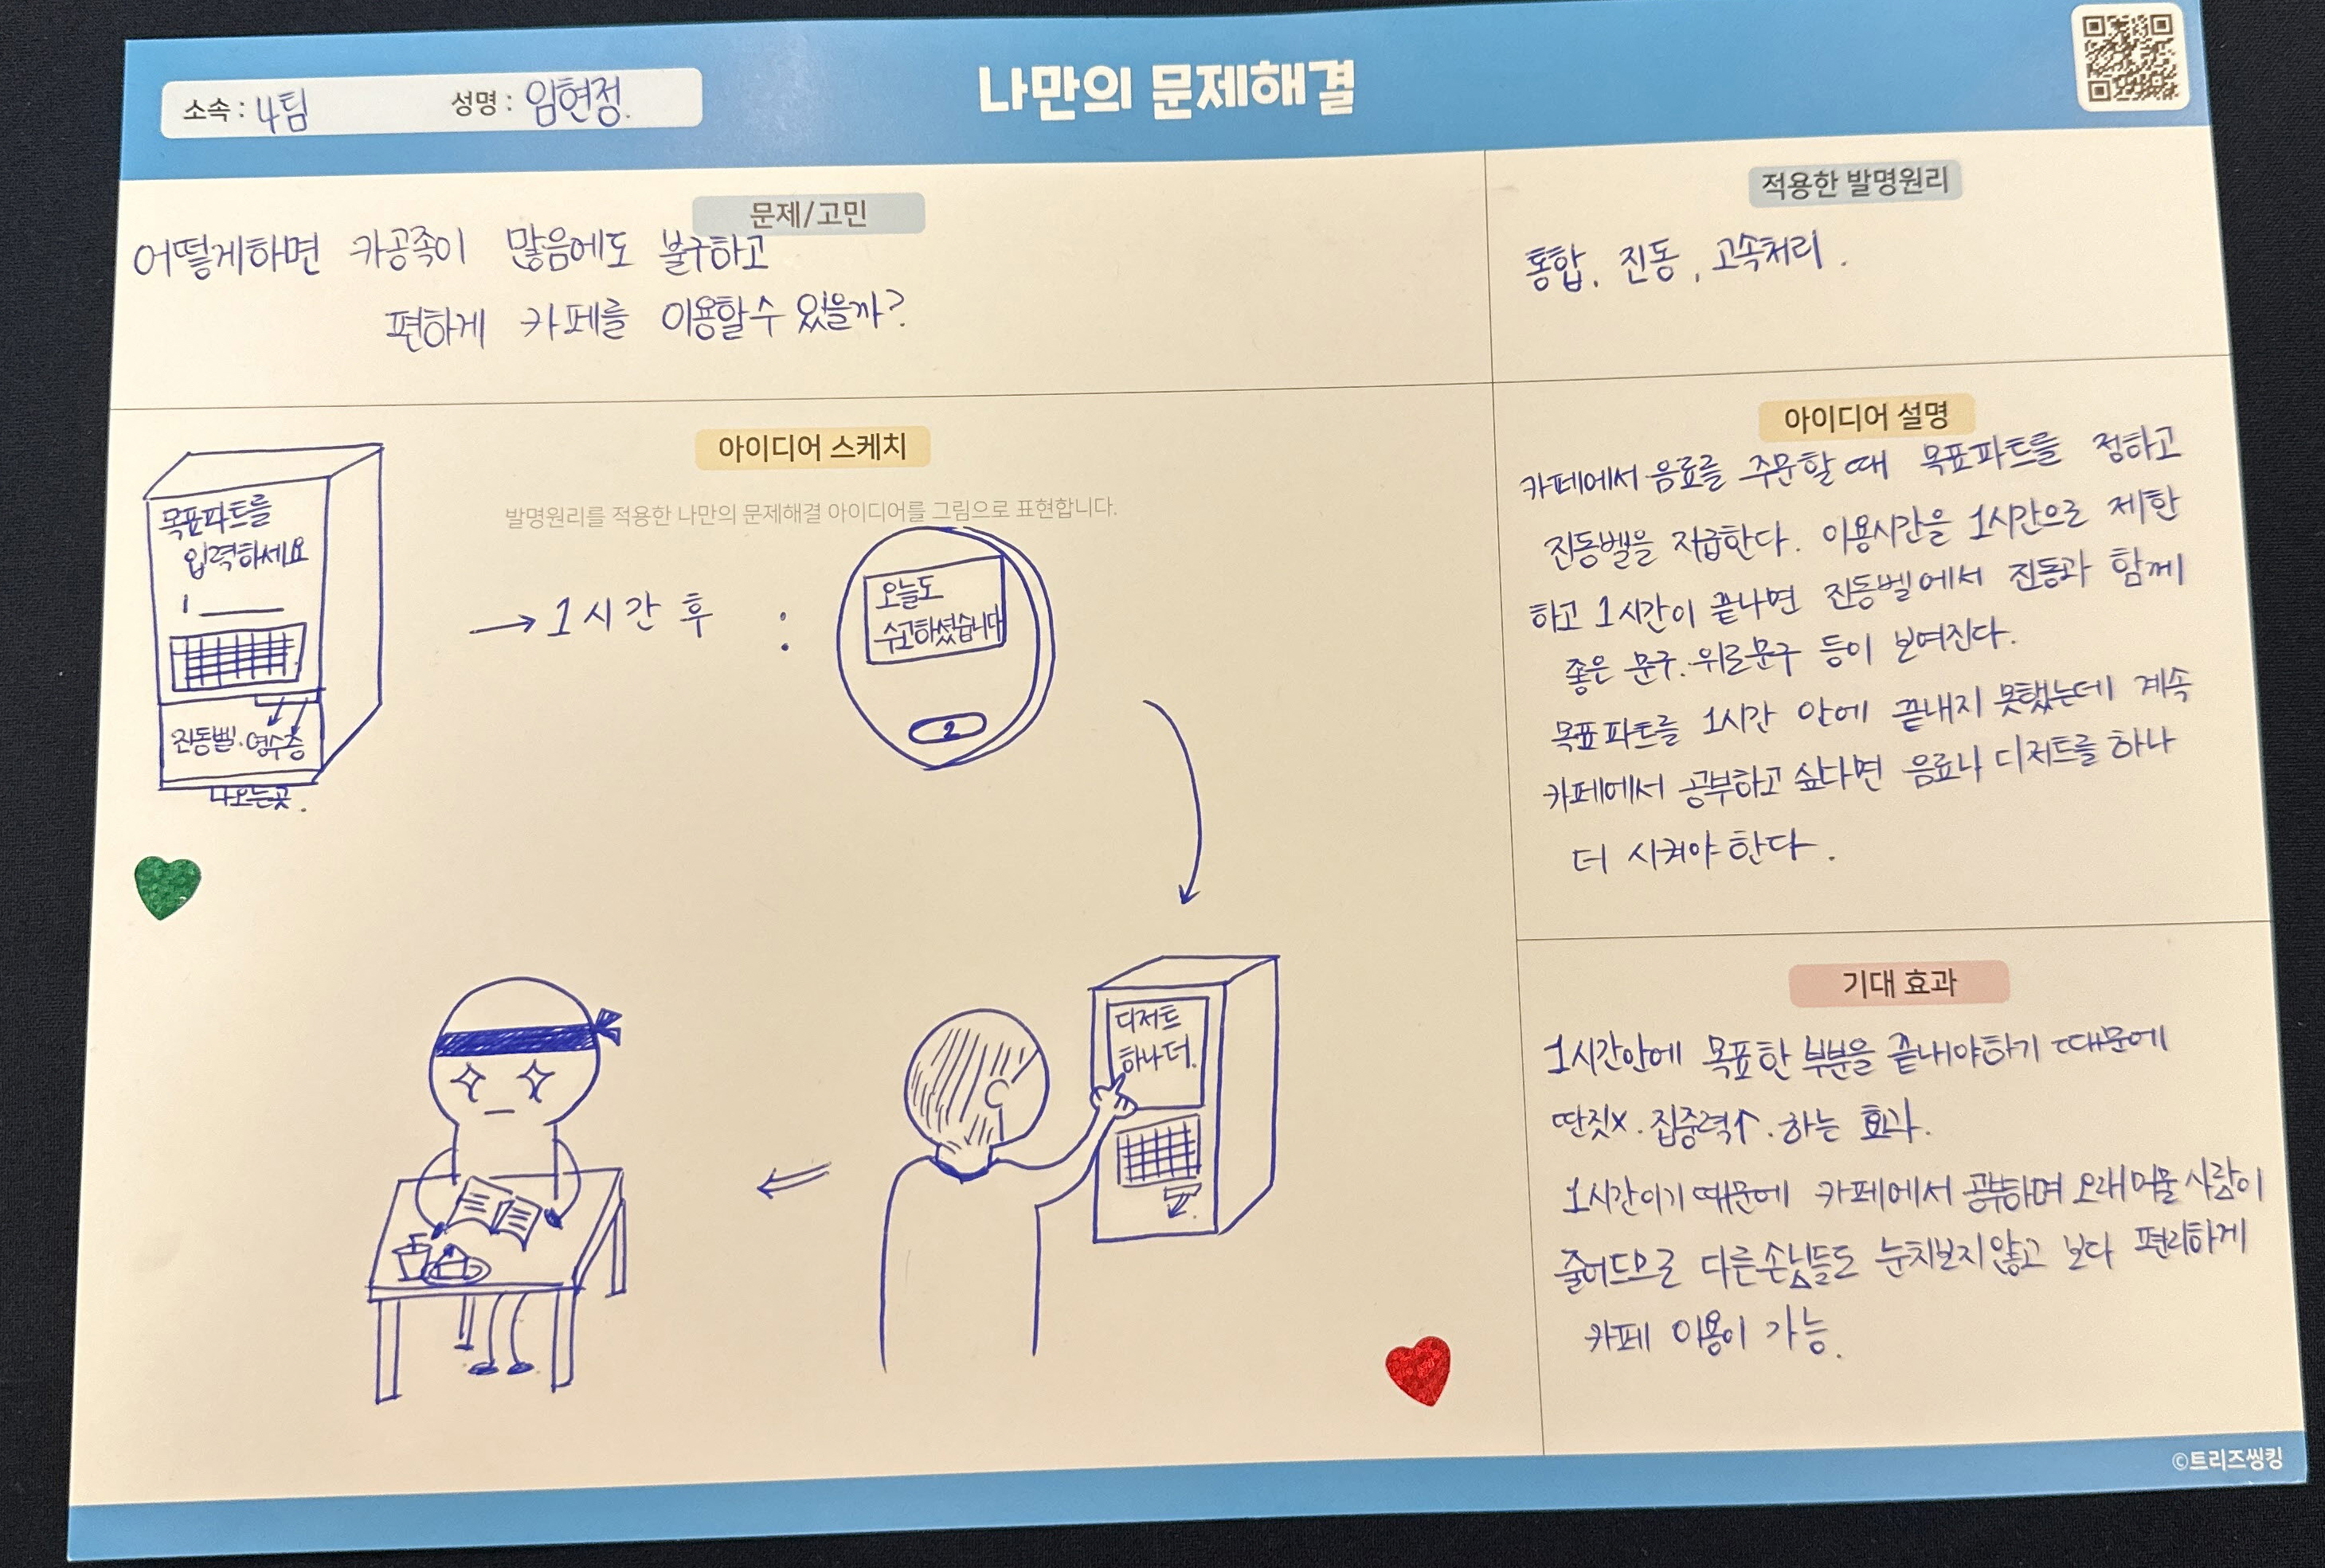 나만의 문제해결
소속 : 4팀 성명 : 임현정.
문제/고민
어떻게하면 카공족이 많음에도 불구하고
편하게 카페를 이용할수 있을까?
적용한 발명원리
통합, 진동, 고속처리.
아이디어 스케치
발명원리를 적용한 나만의 문제해결 아이디어를 그림으로 표현합니다.
목표파트를
입력하세요
1
진동벨·영수증
나오는곳.
→ 1시간 후 :
오늘도
수고하셨습니다
2
디저트
하나 더.
아이디어 설명
카페에서 음료를 주문할 때 목표파트를 정하고
진동벨을 지급한다. 이용시간을 1시간으로 제한
하고 1시간이 끝나면 진동벨에서 진동과 함께
좋은 문구·위로문구 등이 보여진다.
목표파트를 1시간 안에 끝내지 못했는데 계속
카페에서 공부하고 싶다면 음료나 디저트를 하나
더 시켜야 한다.
기대 효과
1시간안에 목표한 부분을 끝내야하기 때문에
딴짓x. 집중력↑. 하는 효과.
1시간이기 때문에 카페에서 공부하며 오래머물 사람이
줄어드므로 다른손님들도 눈치보지않고 보다 편리하게
카페 이용이 가능.
©트리즈씽킹